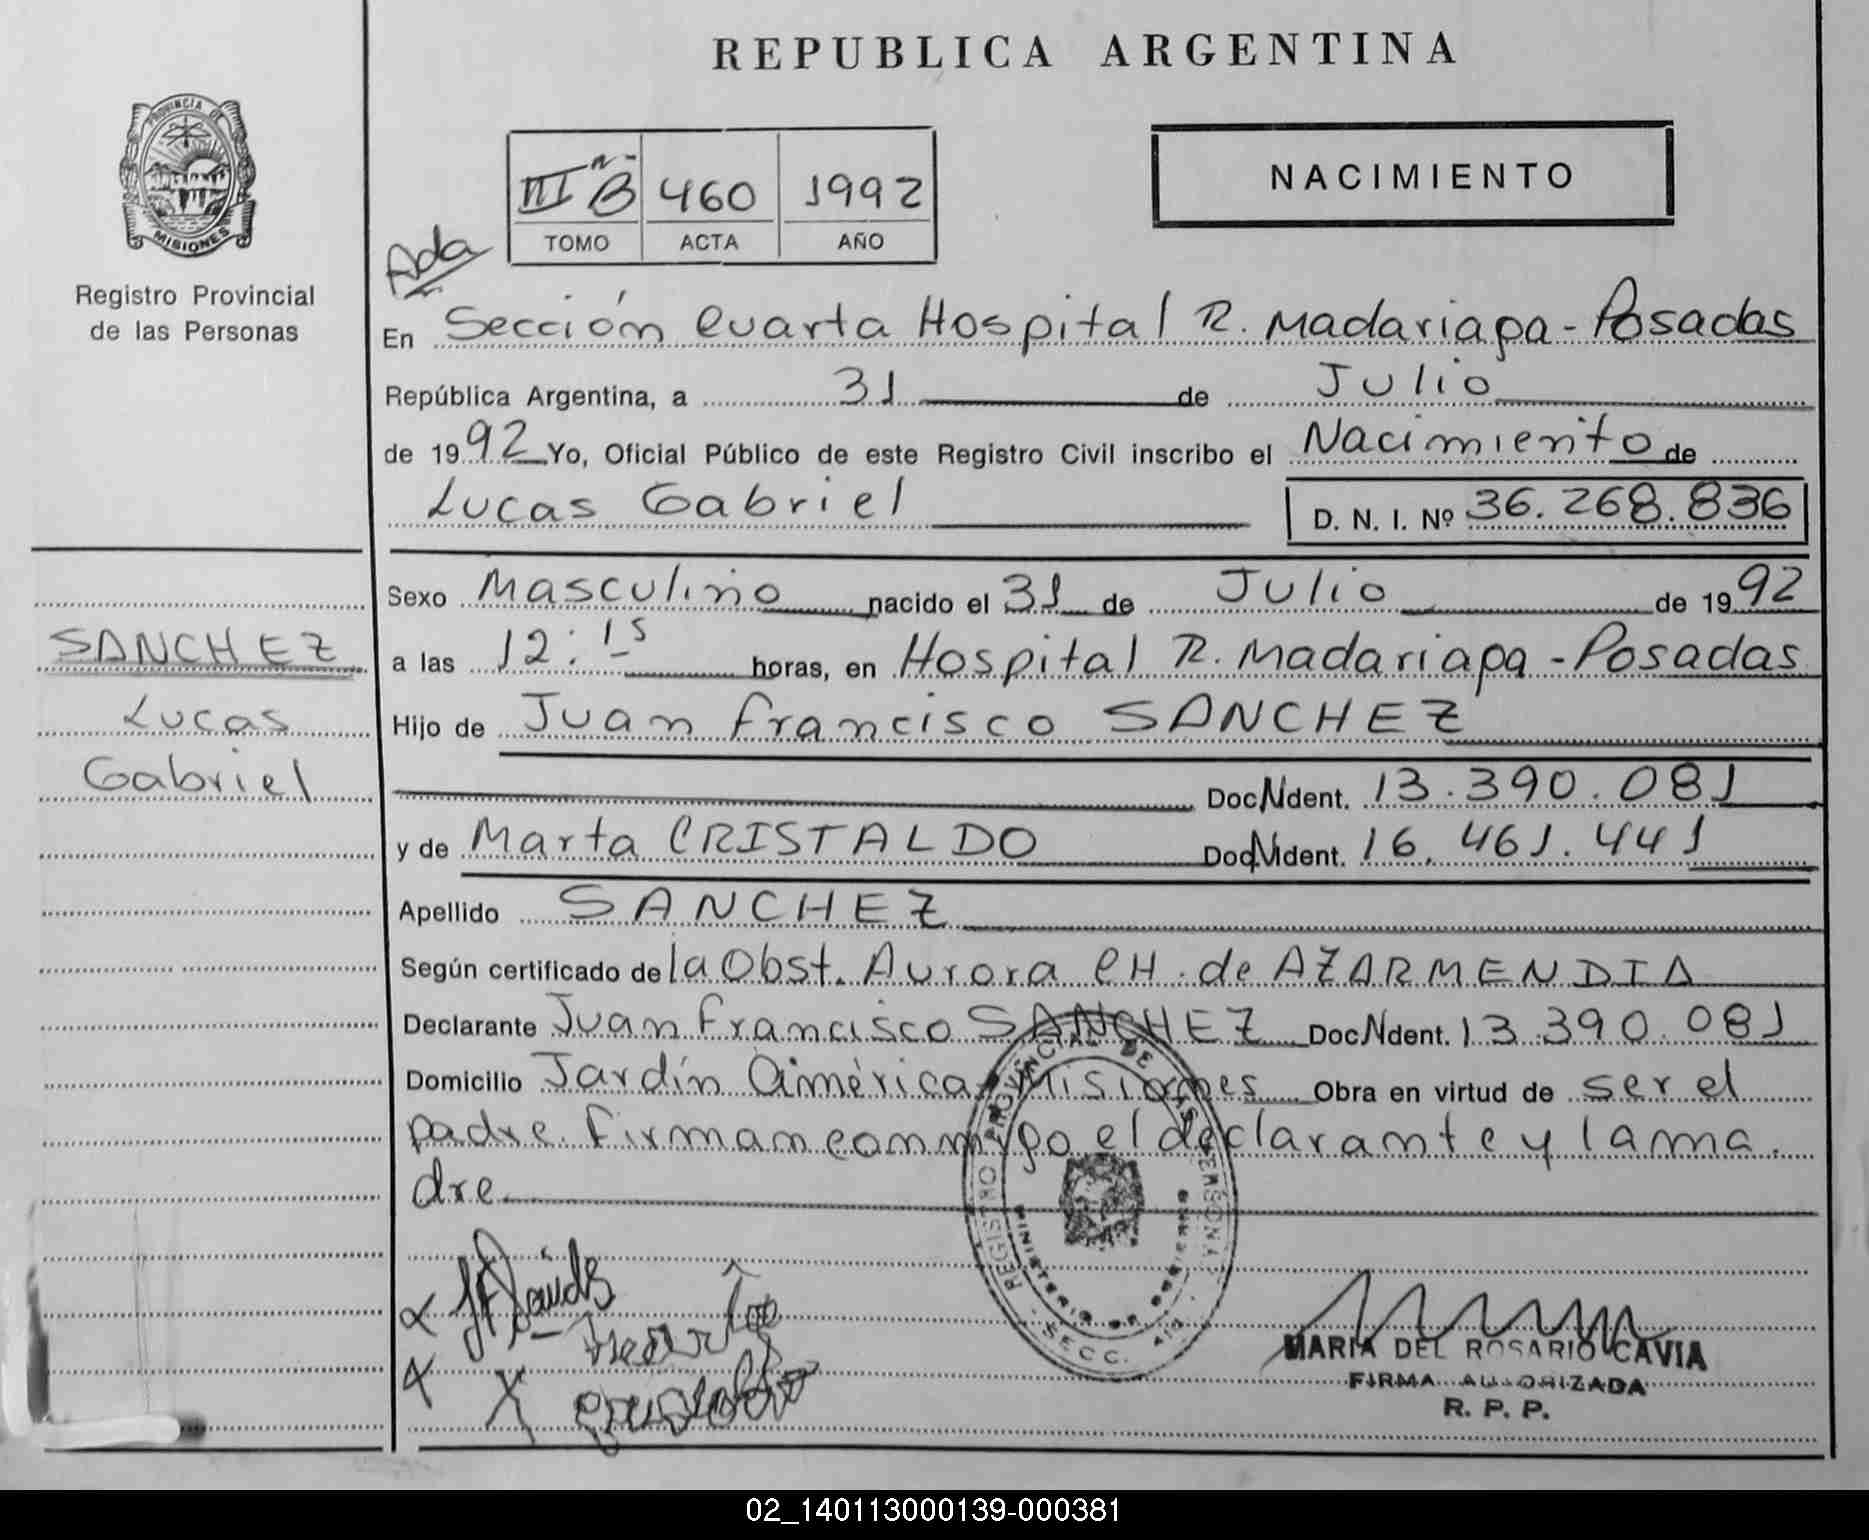 REPUBLICA ARGENTINA
PROVINCIA DE
MISIONES
Registro Provincial
de las Personas
NACIMIENTO
III "B" 460 1992
TOMO ACTA AÑO
Ada
En Sección Cuarta Hospital R. Madariaga - Posadas
República Argentina, a 31 de Julio
de 1992 Yo, Oficial Público de este Registro Civil inscribo el Nacimiento de
Lucas Gabriel D. N. I. Nº 36.268.836
SANCHEZ
Lucas
Gabriel
Sexo Masculino nacido el 31 de Julio de 1992
a las 12:15 horas, en Hospital R. Madariaga - Posadas
Hijo de Juan Francisco SANCHEZ
Doc. Ident. 13.390.081
y de Marta CRISTALDO Doc. Ident. 16.461.441
Apellido SANCHEZ
Según certificado de la Obst. Aurora CH. de AZARMENDIA
Declarante Juan Francisco SANCHEZ Doc. Ident. 13.390.081
Domicilio Jardín América - Misiones Obra en virtud de ser el
padre. Firman conmigo el declarante y la ma.
dre
REGISTRO PROVINCIAL DE LAS PERSONAS
MINISTERIO DE GOBIERNO
SECC. 4ta
MARIA DEL ROSARIO CAVIA
FIRMA AUTORIZADA
R. P. P.
02_140113000139-000381